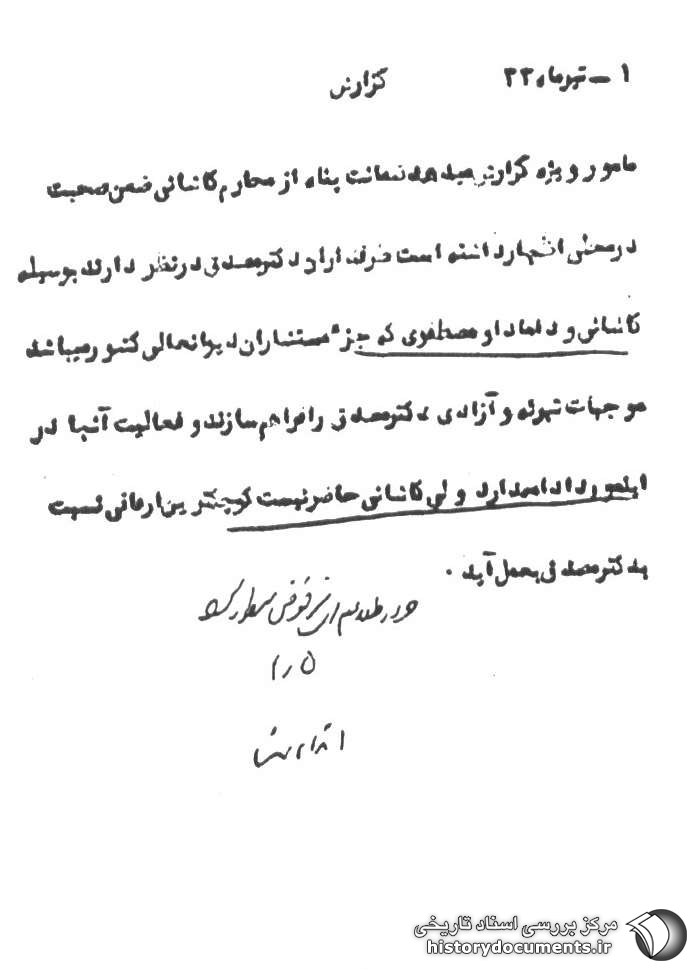 ۱ ــ تیرماه ۳۳
گزارش
مامور ویژه گزارش میدهد شمانت پناه از محارم کاشانی ضمن صحبت
در محلی اظهار داشته است طرفداران دکتر مصدق در نظر دارند بوسیله
کاشانی و داماد او مصطفوی که جزء مستشاران دیوانعالی کشور میباشد
موجبات تبرئه و آزادی دکتر مصدق را فراهم سازند و فعالیت آنها در
اینمورد ادامه دارد ولی کاشانی حاضر نیست کوچکترین ارفاقی نسبت
بدکتر مصدق بعمل آید .
۵ ر ۱
اقدام شد
مرکز بررسی اسناد تاریخی
historydocuments.ir